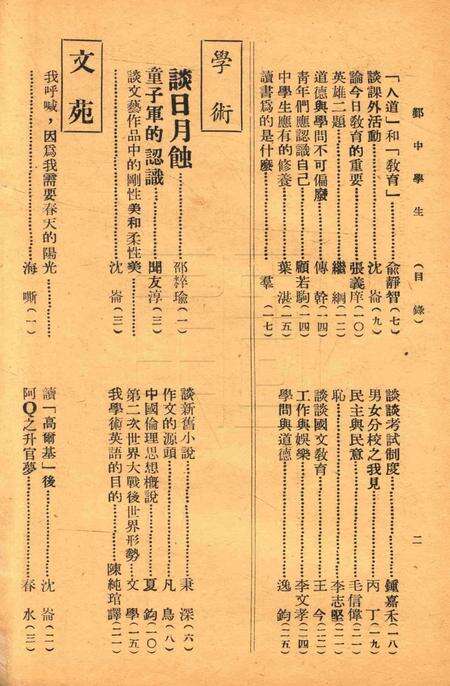 鄞中學生 (目錄) 二
「人道」和「敎育」 俞靜智(七)
談課外活動 沈崙(九)
論今日敎育的重要 張義庠(一〇)
英雄二題 繼綱(一二)
道德與學問不可偏廢 傅幹(一四)
靑年們應認識自己 顧若駒(一四)
中學生應有的修養 葉湛(一五)
讀書爲的是什麽 羣(一七)
談談考試制度 鍾嘉禾(一八)
男女分校之我見 丙丁(一九)
民主與民意 毛信偉(二一)
恥 李志堅(二一)
談談國文敎育 王今(二二)
工作與娛樂 李文孝(二四)
學問與道德 逸鈞(二五)
學術
談日月蝕 邵粹瑜(一)
童子軍的認識 聞友淳(三)
談文藝作品中的剛性美和柔性美 沈崙(三)
談新舊小說 秉深(六)
作文的源頭 凡鳥(八)
中國倫理思想槪說 夏鈞(一〇)
第二次世界大戰後世界形勢 文學(一五)
我學術英語的目的 陳純琯譯(二一)
文苑
我呼喊,因爲我需要春天的陽光 海嘶(一)
讀「高爾基」後 沈崙(二)
阿Q之升官夢 春水(三)